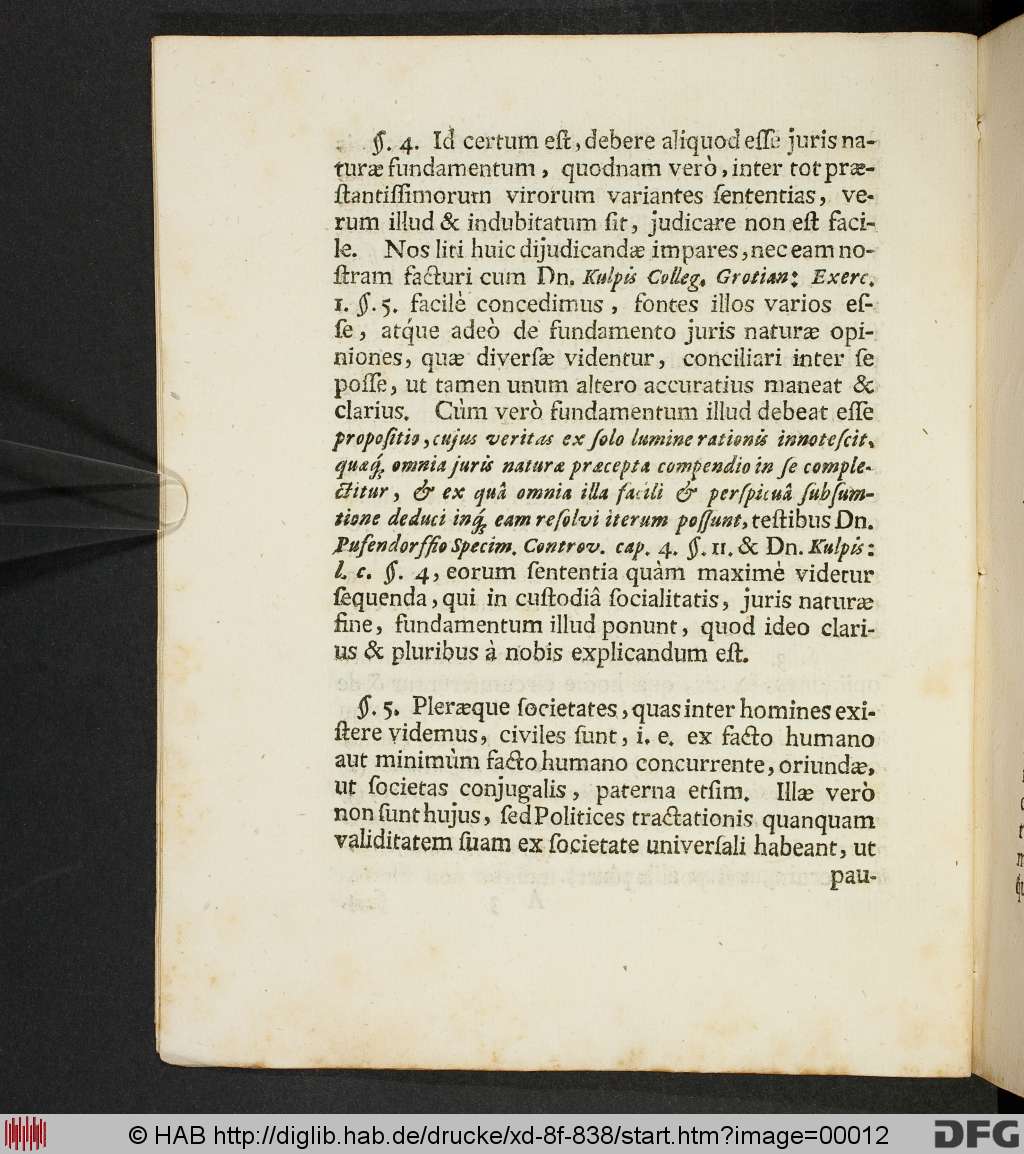 §. 4. Id certum eſt, debere aliquod eſſe juris na-
turæ fundamentum, quodnam verò, inter tot præ-
ſtantiſſimorum virorum variantes ſententias, ve-
rum illud & indubitatum ſit, judicare non eſt faci-
le. Nos liti huic dijudicandæ impares, nec eam no-
ſtram facturi cum Dn. Kulpis Colleg. Grotian: Exerc.
1. §. 5. facilè concedimus, fontes illos varios eſ-
ſe, atq́ue adeò de fundamento juris naturæ opi-
niones, quæ diverſæ videntur, conciliari inter ſe
poſſe, ut tamen unum altero accuratius maneat &
clarius. Cùm verò fundamentum illud debeat eſſe
propoſitio, cujus veritas ex ſolo lumine rationis innoteſcit,
quæq́; omnia juris naturæ præcepta compendio in ſe comple-
ctitur, & ex quâ omnia illa facili & perſpicuâ ſubſum-
tione deduci inq́; eam reſolvi iterum poſſunt, teſtibus Dn.
Pufendorffio Specim. Controv. cap. 4. §. 11. & Dn. Kulpis:
l. c. §. 4, eorum ſententia quàm maximè videtur
ſequenda, qui in cuſtodiâ ſocialitatis, juris naturæ
fine, fundamentum illud ponunt, quod ideo clari-
us & pluribus à nobis explicandum eſt.
§. 5. Pleræque ſocietates, quas inter homines exi-
ſtere videmus, civiles ſunt, i. e. ex facto humano
aut minimùm facto humano concurrente, oriundæ,
ut ſocietas conjugalis, paterna etſim. Illæ verò
non ſunt hujus, ſed Politices tractationis quanquam
validitatem ſuam ex ſocietate univerſali habeant, ut
pau-
© HAB http://diglib.hab.de/drucke/xd-8f-838/start.htm?image=00012
DFG